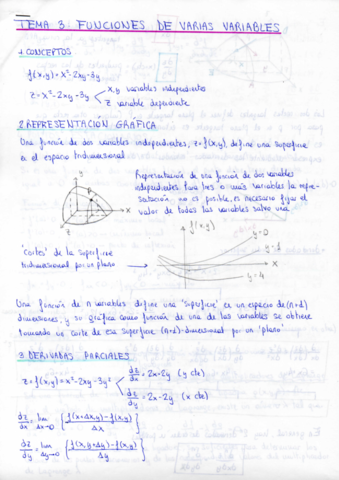 TEMA 3: FUNCIONES DE VARIAS VARIABLES
1. CONCEPTOS
f(x,y) = x² - 2xy - 3y
z = x² - 2xy - 3y < x, y variables independientes
z variable dependiente
2. REPRESENTACIÓN GRÁFICA
Una función de dos variables independientes, z = f(x,y), define una superficie
en el espacio tridimensional
y
P
x
Representación de una función de dos variables
independientes. Para tres o más variables la repre-
sentación no es posible, es necesario fijar el
valor de todas las variables salvo una
f(x,y)
y=0
x
y=4
'Cortes' de la superficie
tridimensional por un plano
Una función de n variables define una 'superficie' en un espacio de (n+1)
dimensiones, y su gráfica como función de una de las variables se obtiene
tomando un corte de esa superficie (n+1)-dimensional por un 'plano'
3. DERIVADAS PARCIALES
z = f(x,y) = x² - 2xy - 3y² < dz/dx = 2x - 2y (y cte)
dz/dy = 2x - 2y (x cte)
dz/dx = lim Δx→0 { f(x+Δx,y) - f(x,y) / Δx }
dz/dy = lim Δy→0 { f(x,y+Δy) - f(x,y) / Δy }